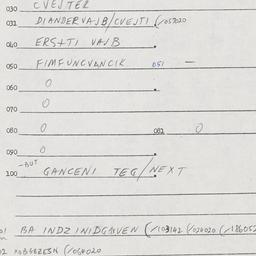 030 CVEJTER
031 DIANDERVAJB/CVEJTI (/059020
040 ERSTTI VAJB
050 FIMFUNCVANCIK 051 —
060 0
070 0
080 0 082 0
090 0
-BUT
100 GANCENI TEG/NEXT
BA INDZINIDGAVEN (/103142 (/020020 (/186052
02 (/054020